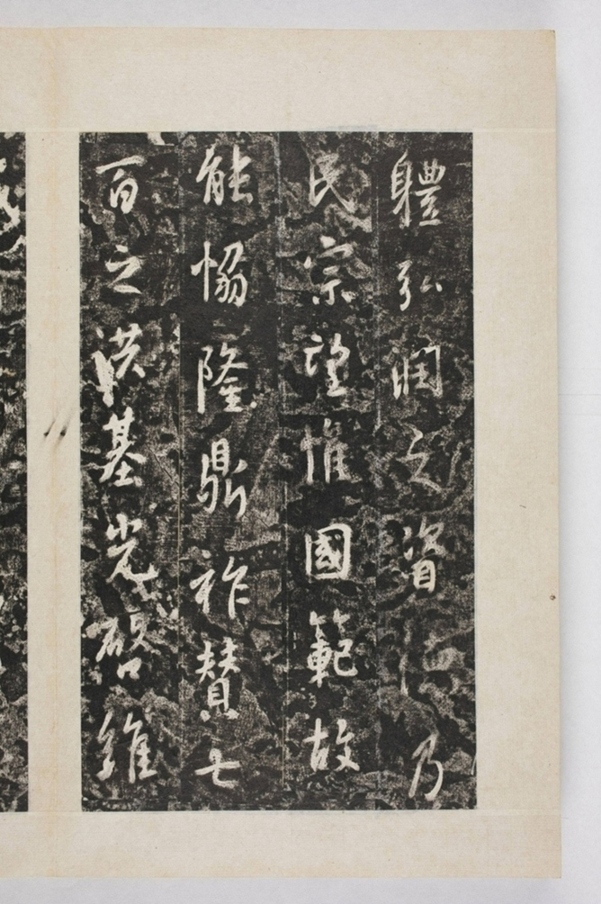 軆弘潤之資乃
民宗望惟國範故
能恊隆鼎祚賛七
百之洪基光啓維